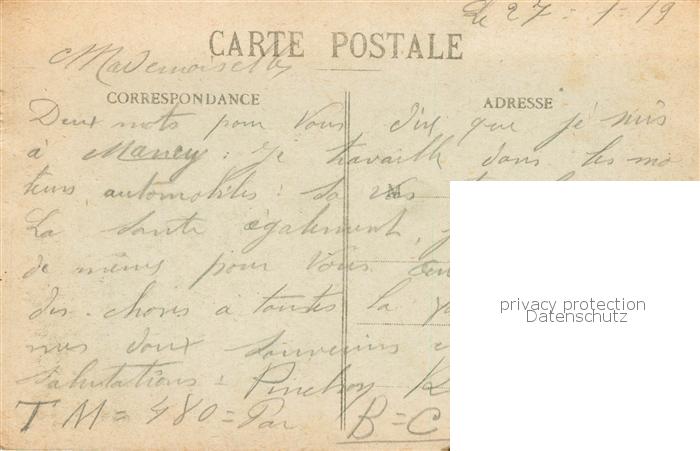 Le 27-1-19
CARTE POSTALE
Mademoiselle
CORRESPONDANCE ADRESSE
Deux mots pour Vous dire que je suis
à Nancy: Je travaille dans les mo
teurs automobiles: Sa Vas
M
La Sante également,
de mêmes pour Vous
des choses à toutes la
mes doux Souvenirs
Salutations:
T M=480=Par B=C
privacy protection
Datenschutz